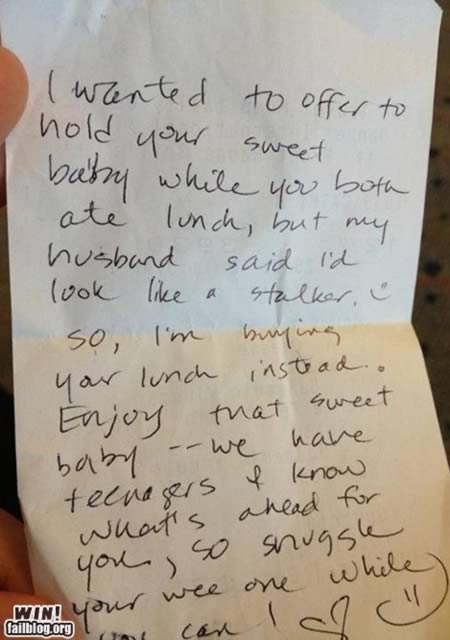 I wanted to offer to
hold your sweet
baby while you both
ate lunch, but my
husband said I'd
look like a stalker. ☺
so, I'm buying
your lunch instead.
Enjoy that sweet
baby -- we have
teenagers & know
what's ahead for
you, so snuggle
your wee one while
you can! ♡ ☺
WIN!
failblog.org